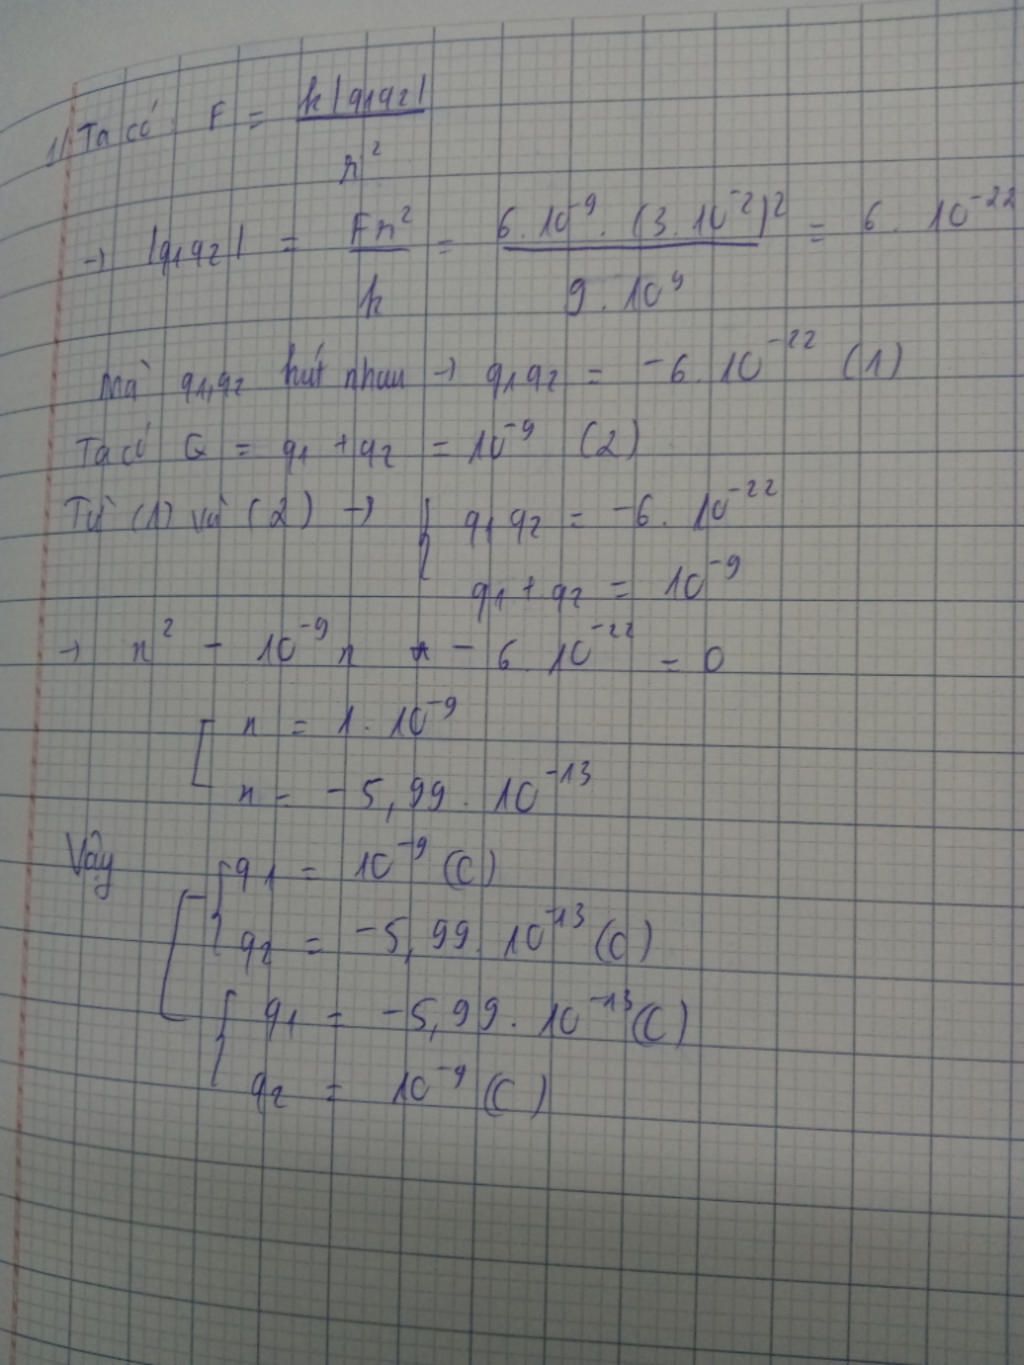 1/ Ta có: F = k|q1q2| / r²
→ |q1q2| = Fr² / k = 6.10⁻⁹.(3.10⁻²)² / 9.10⁹ = 6.10⁻²²
Mà q1,q2 hút nhau → q1q2 = -6.10⁻²² (1)
Ta có Q = q1 + q2 = 10⁻⁹ (2)
Từ (1) và (2) → { q1q2 = -6.10⁻²²
q1 + q2 = 10⁻⁹
→ x² - 10⁻⁹x - 6.10⁻²² = 0
[ x = 1.10⁻⁹
x = -5,99.10⁻¹³
Vậy [ { q1 = 10⁻⁹ (C)
q2 = -5,99.10⁻¹³ (C)
{ q1 = -5,99.10⁻¹³ (C)
q2 = 10⁻⁹ (C)